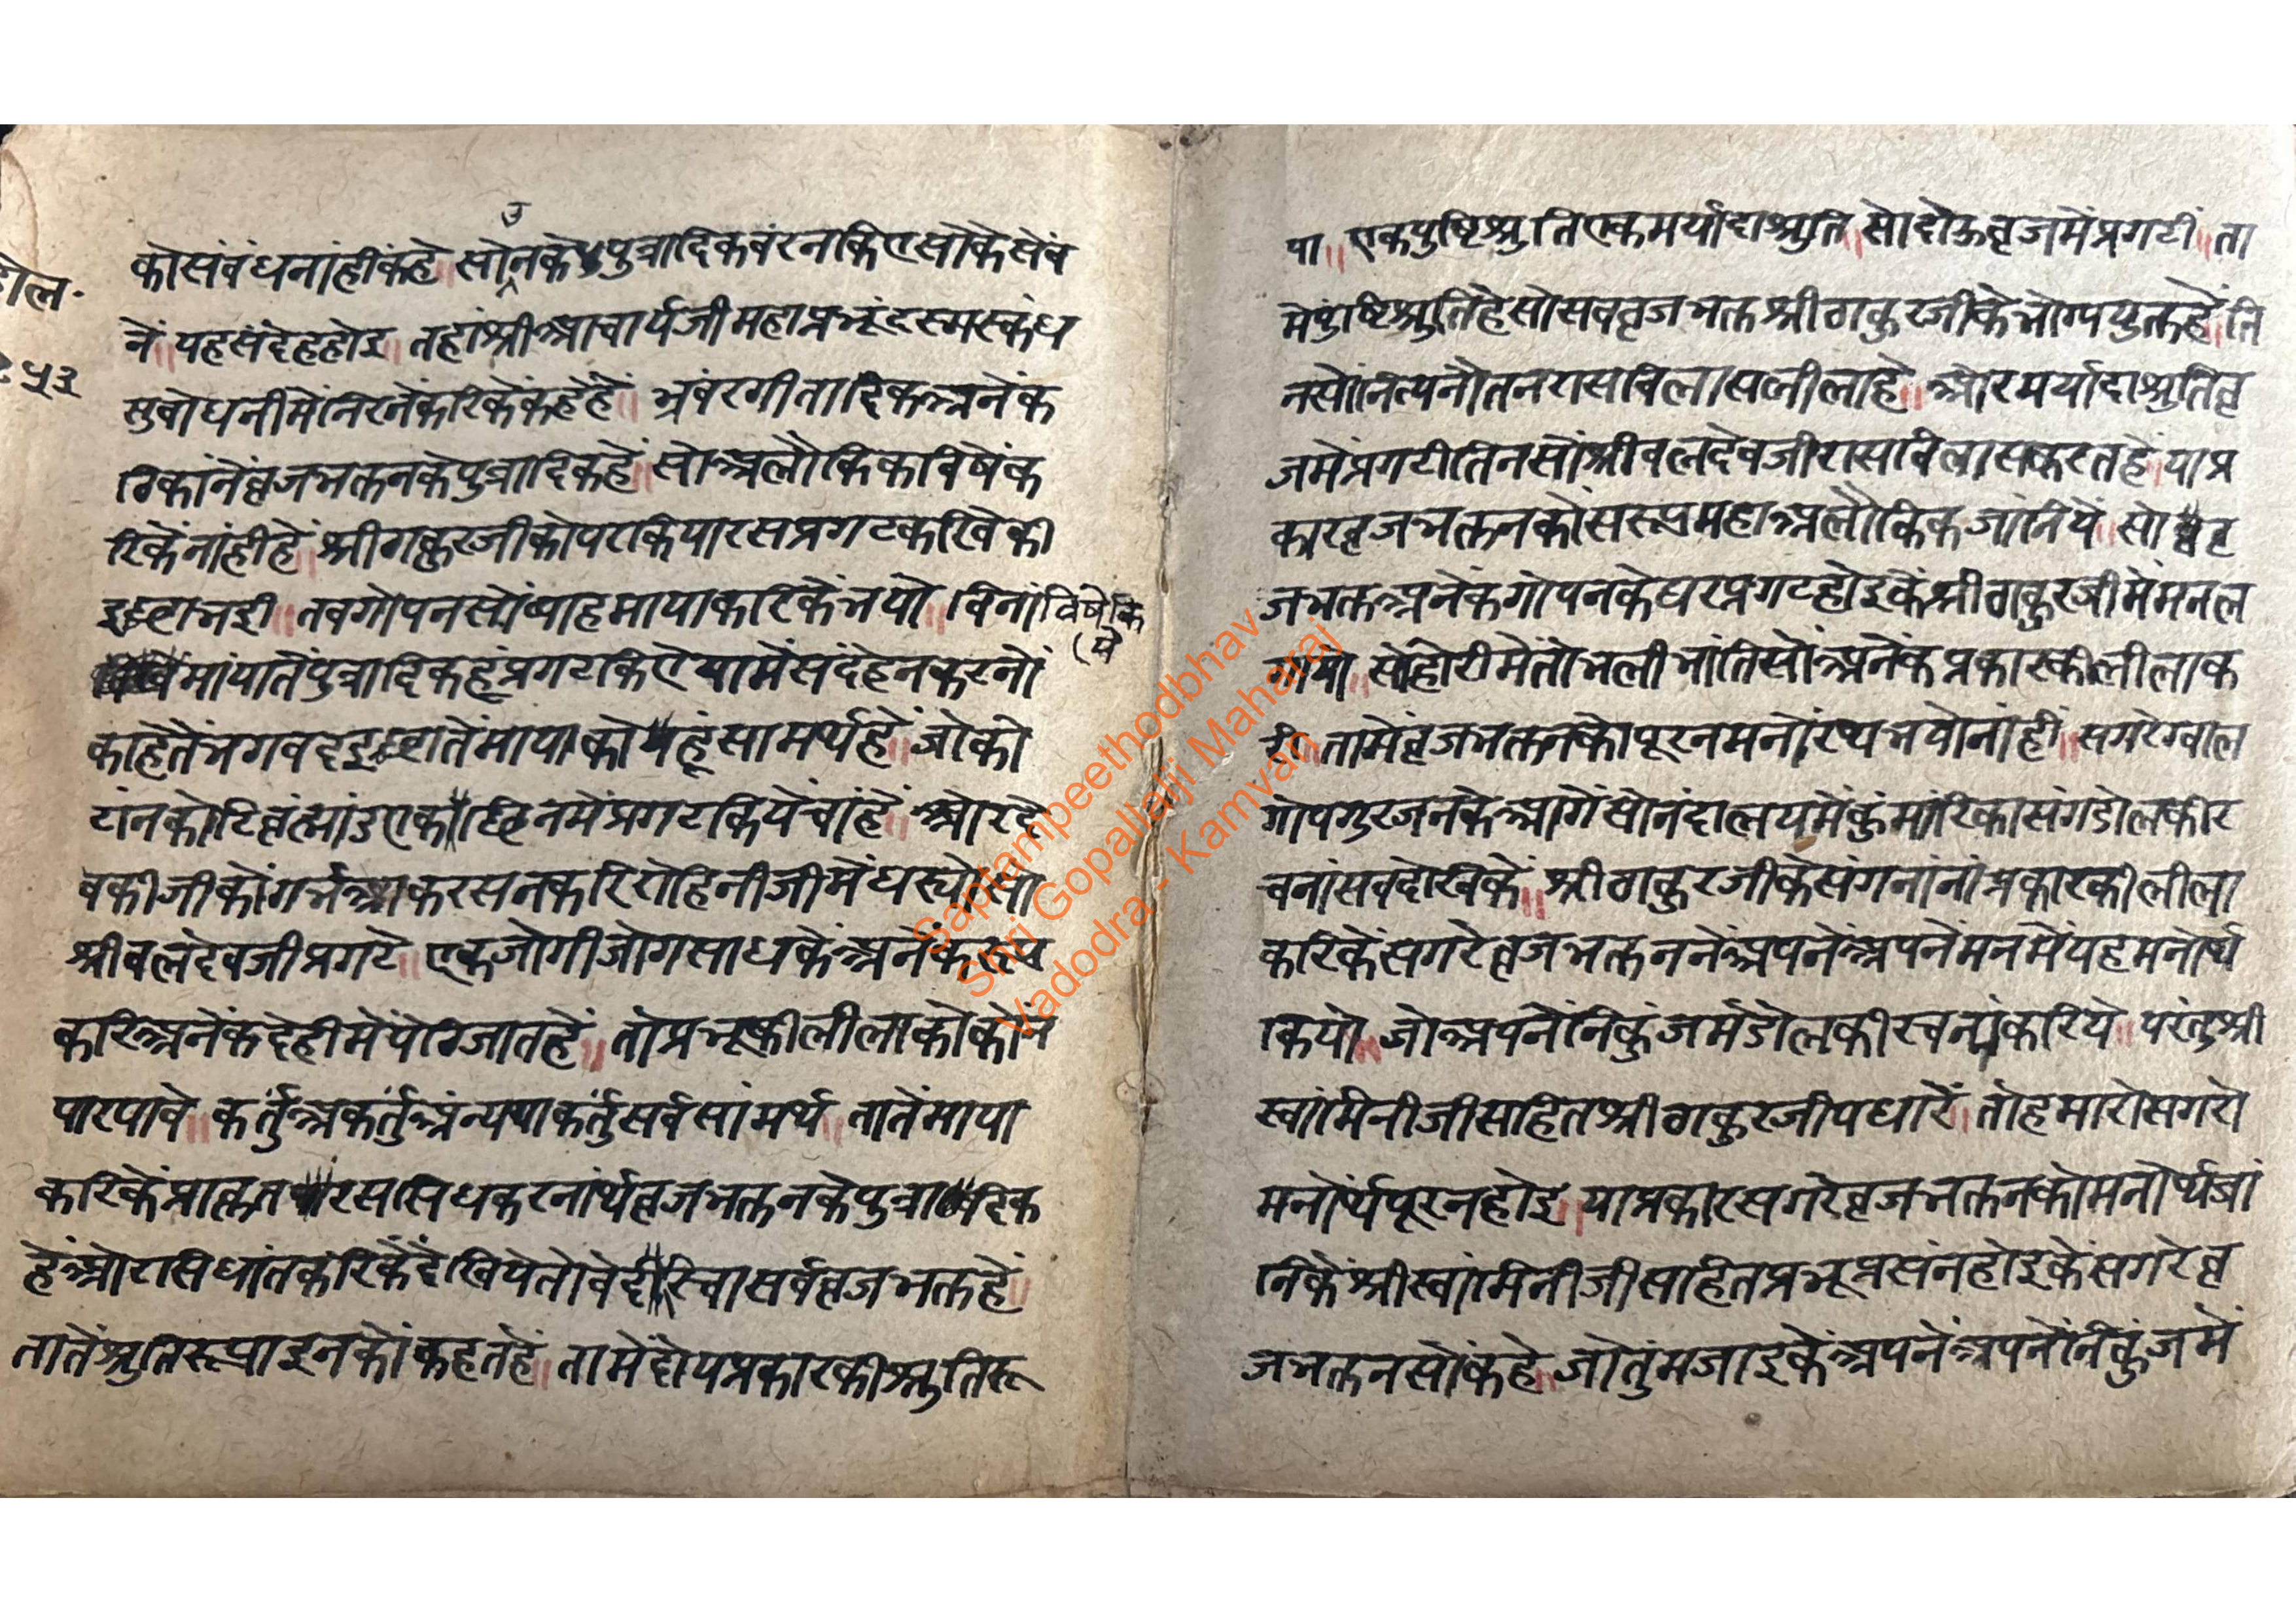 डोल.
५३
कोसंबंधनांहींकहे॥सोउनकेपुत्रादिकबंरनकिएसोकेसेंब
नें॥यहसंदेहहोइ॥तहांश्रीआचार्यजीमहाप्रभूंदस्मस्कंध
सुबोधनीमेंनिरनेंकरिकेंकहेंहें॥भ्रंवरगीतादिकअनेंक
ठिकांनेंब्रजभक्तनकेपुत्रादिककहें॥सोअलौकिकविषेंक
रिकेंनांहीहें॥श्रीठाकुरजीकोपरकियारसप्रगटकरिवेकी
इछाभई॥तबगोपनसोंब्याहमायाकरिकेंभयो॥विनांविषेंकि
ये
मांयातेंपुत्रादिकहूंप्रगटकिऐयामेंसंदेहनकरनों
काहेतेंभगवदइछातेंमायाकोयहूंसामर्थहें॥जोको
टांनकोटिब्रंह्मांडएकछिनमेंप्रगटकियेचांहें॥ओरदे
वकीजीकोंगर्भआकरसनकरिरोहिनीजीमेंधर्योसो
श्रीबलदेवजीप्रगटे॥एकजोगीजोगसाधकेंअनेंकरूप
करिअनेंकदेहीमेंपेठिजातहें॥तोप्रभूकीलीलाकोकोंन
पारपावे॥कर्तुंअकर्तुंअंन्यथाकर्तुंसर्वसांमर्थ॥तातेंमाया
करिकेंप्राकृतरससिधकरनांर्थब्रजभक्तनकेपुत्रादिक
हेंओरसिधांतकरिकेंदेखियेतोवेदरिचासर्वब्रजभक्तहें॥
तातेंश्रुतिरूपाइनकोंकहतहें॥तामेंदोयप्रकारकीश्रुतिरू
पा॥एकपुष्टिश्रुतिएकमर्यादाश्रुति॥सोदोऊब्रजमेंप्रगटीं॥ता
मेंपुष्टिश्रुतिहेसोसबब्रजभक्तश्रीठाकुरजीकेभोग्ययुक्तहें॥ति
नसोंनित्यनौतनरासविलासलीलाहे॥ओरमर्यादाश्रुतिब्र
जमेंप्रगटीतिनसोंश्रीबलदेवजीरासविलासकरतहें॥याप्र
कारब्रजभक्तनकोंसरूपमहाअलौकिकजांनियें॥सोब्र
जभक्तअनेंकगोपनकेघरप्रगटहोइकेंश्रीठाकुरजीमेंमनल
गायो॥सोहोरीमेंतोभलीभांतिसोंअनेंकप्रकारकीलीलाक
री॥तामेंब्रजभक्तनकोपूरनमनोंरथभयोनांहीं॥सगरेग्वाल
गोपगुरजनकेआगेंसोनंदालयमेंकुंमारिकासंगडोलकीर
चनांसबदेखिकें॥श्रीठाकुरजीकेसंगनांनांप्रकारकीलीला
करिकेंसगरेब्रजभक्तननेंअपनेंअपनेंमनमेंयहमनोर्थ
कियो॥जोअपनेंनिकुंजमेंडोलकीरचनांकरिये॥परंतुश्री
स्वांमिनीजीसहितश्रीठाकुरजीपधारें॥तोहमारोसगरो
मनोर्थपूरनहोइ॥याप्रकारसगरेब्रजभक्तनकोमनोर्थजां
निकेंश्रीस्वांमिनीजीसहितप्रभूप्रसंनहोइकेंसगरेब्र
जभक्तनसोंकहे॥जोतुंमजाइकेंअपनेंअपनेंनिकुंजमें